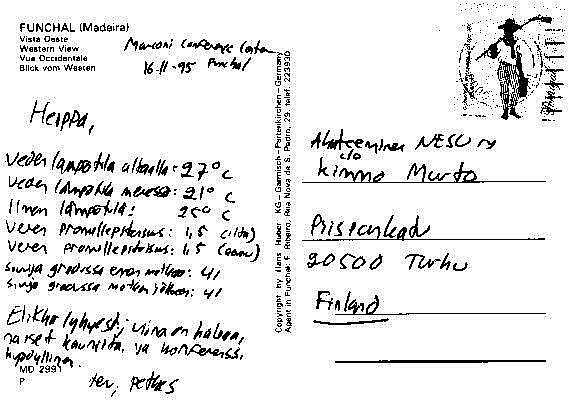 FUNCHAL (Madeira)
Vista Oeste
Western View
Vue Occidentale
Blick vom Westen
Marconi Conference Center
16.11-95 Funchal
Heippa,
Veden lämpötila altaalla: 27° C
Veden lämpötila meressä: 21° C
Ilman lämpötila: 25° C
Veren promillepitoisuus: 1,5 (ilta)
Veren promillepitoisuus: 1,5 (aamu)
gradussa ennen matkaa: 41
gradussa matkan jälkeen: 41
Elikkä lyhyesti, viina on halpaa,
naiset kauniita, ja konferenssi
hyödyllinen.
MD 2991
P
ter, Petkus
Copyright by Hans Huber KG - Garmisch-Partenkirchen - Germany
Agent in Funchal F. Ribeiro, Rua Nova de S. Pedro, 29, telef. 223930
NESU ry
c/o
Kimmo Murto
20500 Turku
Finland